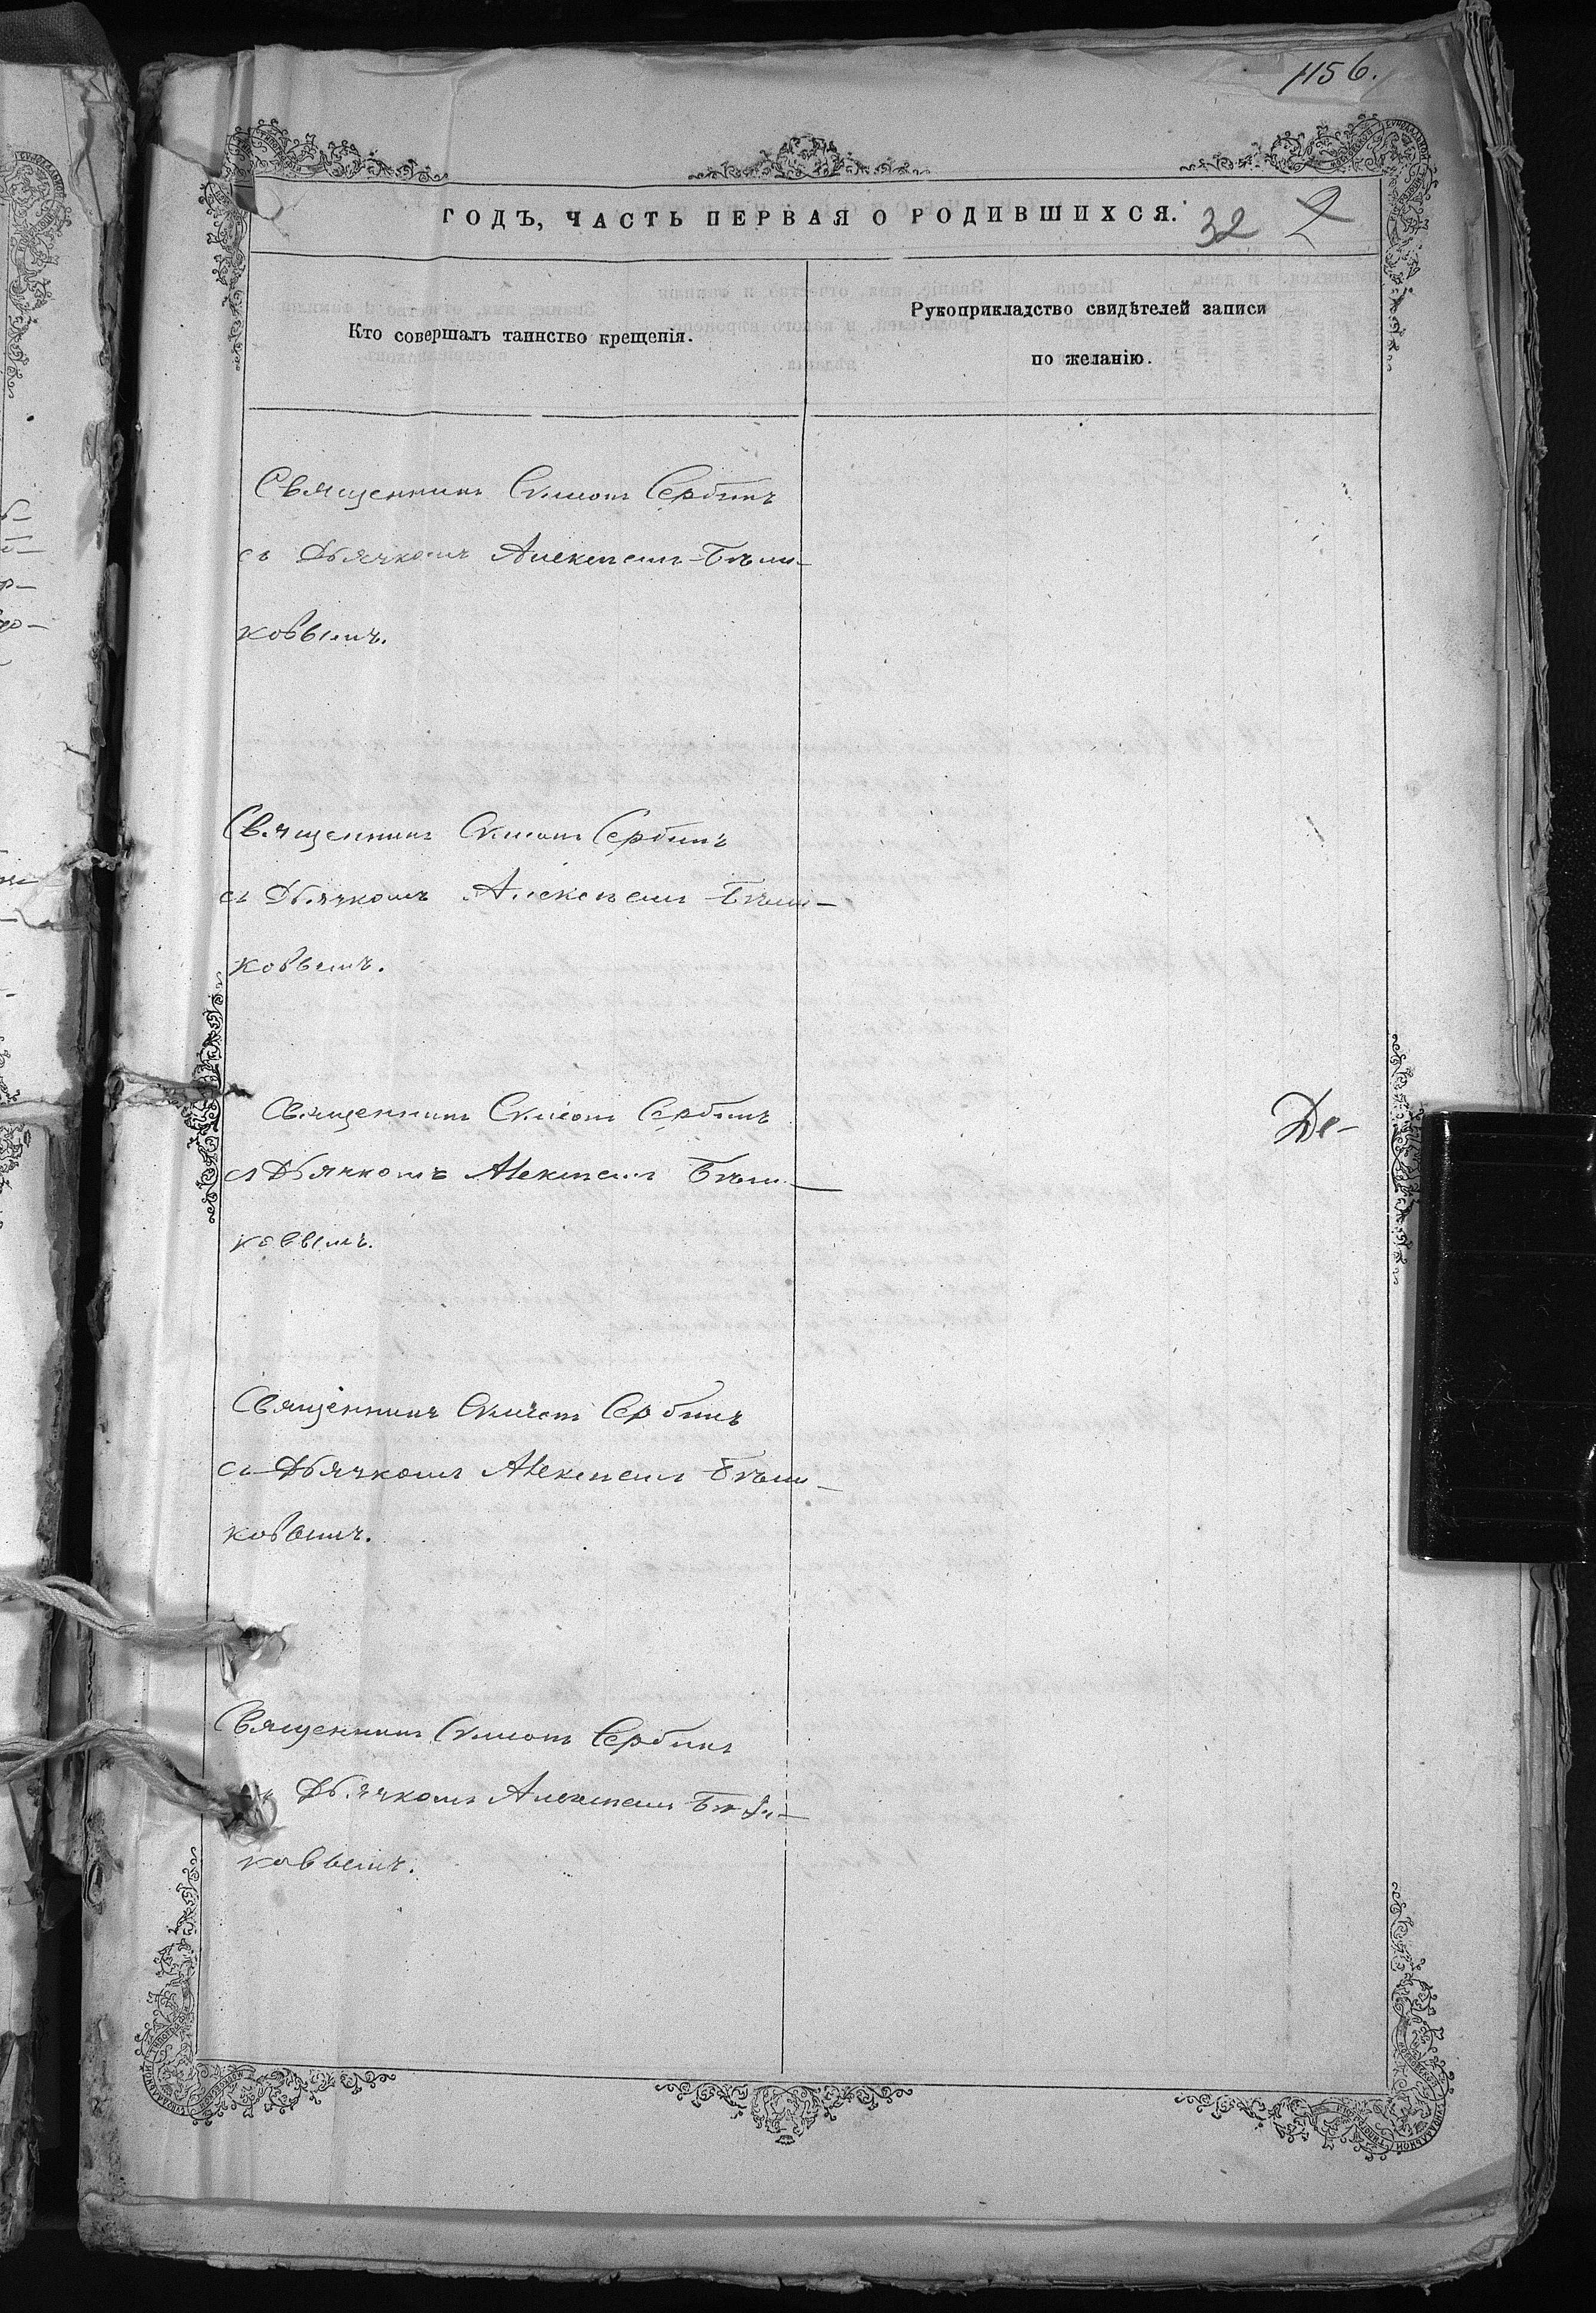 1156.
ГОДЪ, ЧАСТЬ ПЕРВАЯ О РОДИВШИХСЯ.
32 2
Кто совершалъ таинство крещенія.
Рукоприкладство свидѣтелей записи
по желанію.
Священникъ Симонъ Сербинъ
съ Дьячкомъ Алексѣемъ Бѣли-
ковымъ.
Священникъ Симонъ Сербинъ
съ Дьячкомъ Алексѣемъ Бѣли-
ковымъ.
Священникъ Симонъ Сербинъ
съ Дьячкомъ Алексѣемъ Бѣли-
ковымъ.
Де-
Священникъ Симонъ Сербинъ
съ Дьячкомъ Алексѣемъ Бѣли-
ковымъ.
Священникъ Симонъ Сербинъ
Дьячкомъ Алексѣемъ Бѣли-
ковымъ.